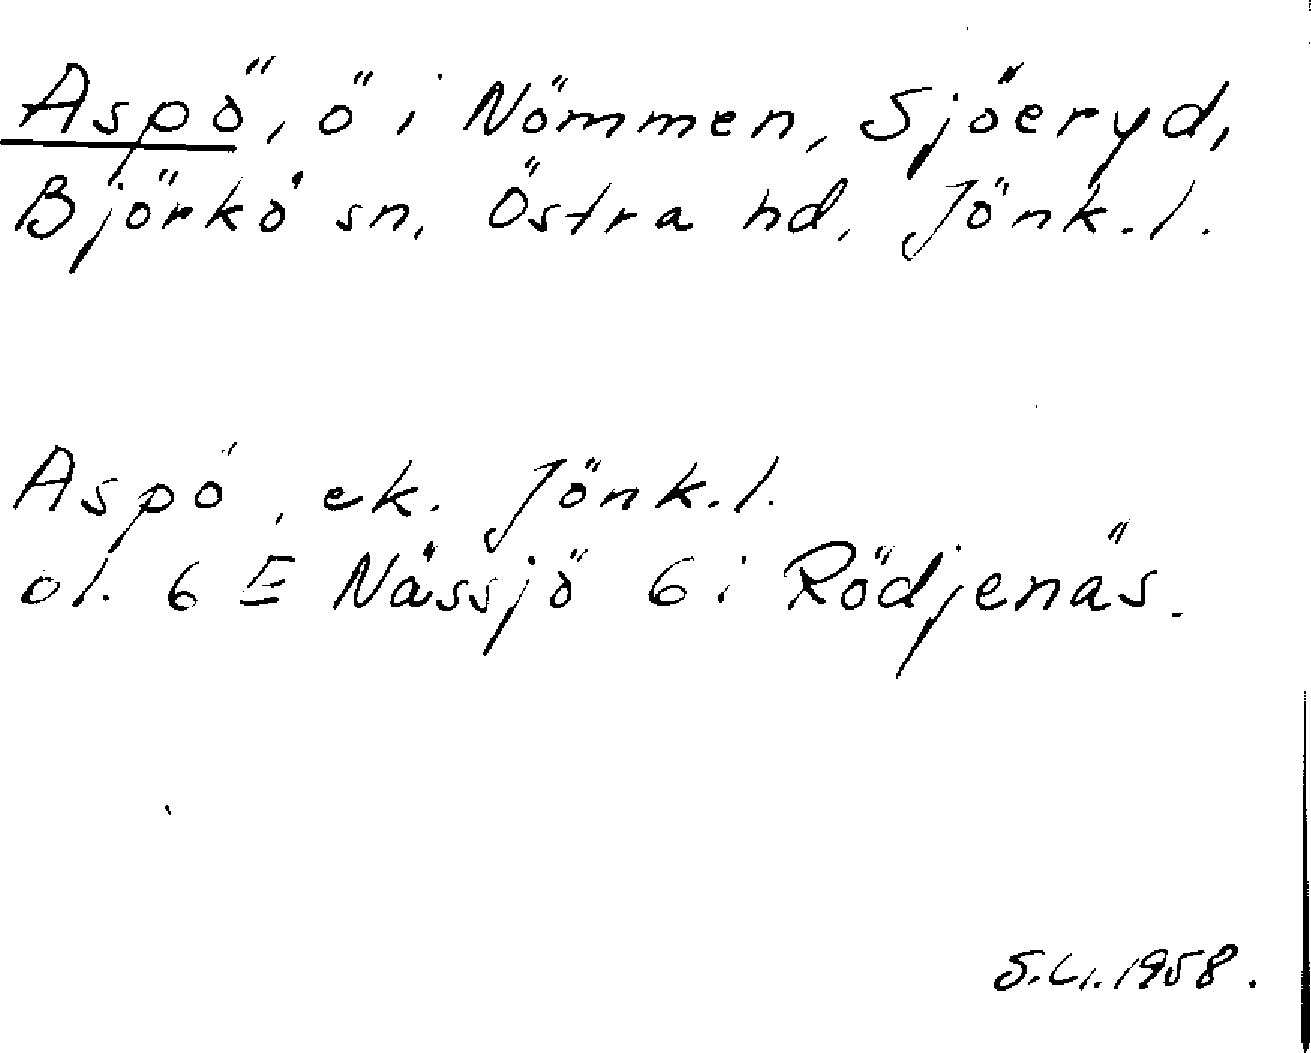 Aspö, ö i Nömmen, Sjöeryd,
Björkö sn, Östra hd, Jönk.l.
Aspö, ek. Jönk.l.
bl. 6 E Nässjö 6 i Rödjenäs.
S.Li.1958.